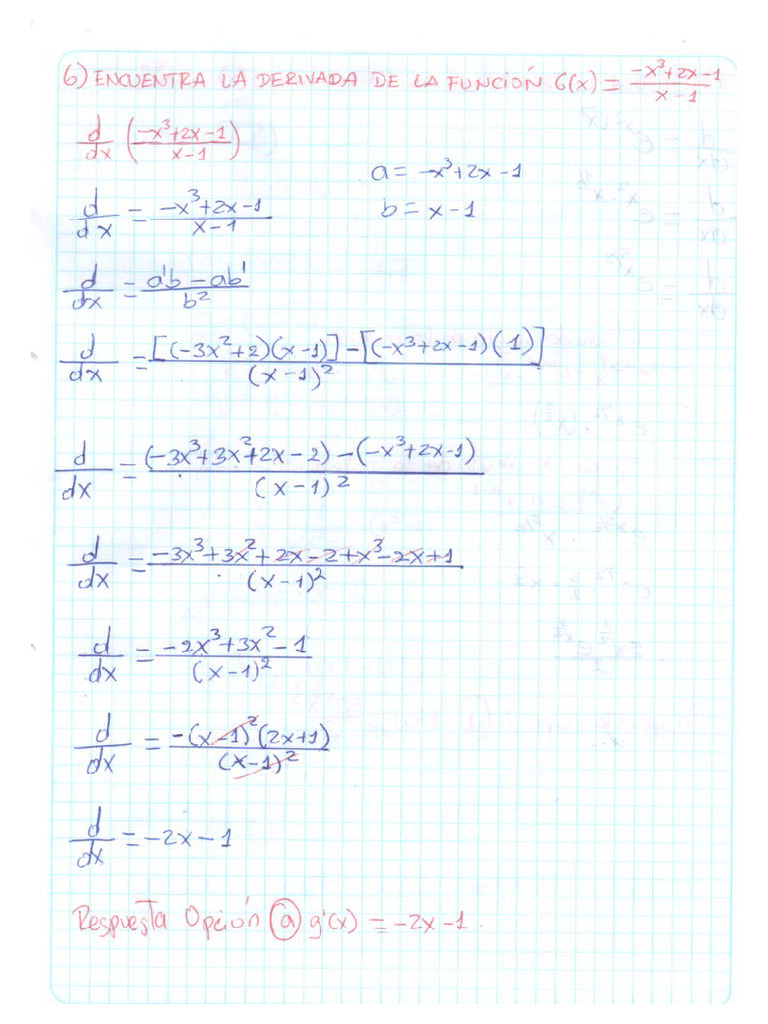 6) ENCUENTRA LA DERIVADA DE LA FUNCIÓN G(x) = (-x³+2x-1)/(x-1)
d/dx ((-x³+2x-1)/(x-1))
a = -x³+2x-1
d/dx = (-x³+2x-1)/(x-1)
b = x-1
d/dx = (a'b - ab')/b²
d/dx = ([(-3x²+2)(x-1)] - [(-x³+2x-1)(1)])/(x-1)²
d/dx = ((-3x³+3x²+2x-2) - (-x³+2x-1))/(x-1)²
d/dx = (-3x³+3x²+2x-2+x³-2x+1)/(x-1)²
d/dx = (-2x³+3x²-1)/(x-1)²
d/dx = (-(x-1)²(2x+1))/(x-1)²
d/dx = -2x-1
Respuesta Opción a g'(x) = -2x-1.